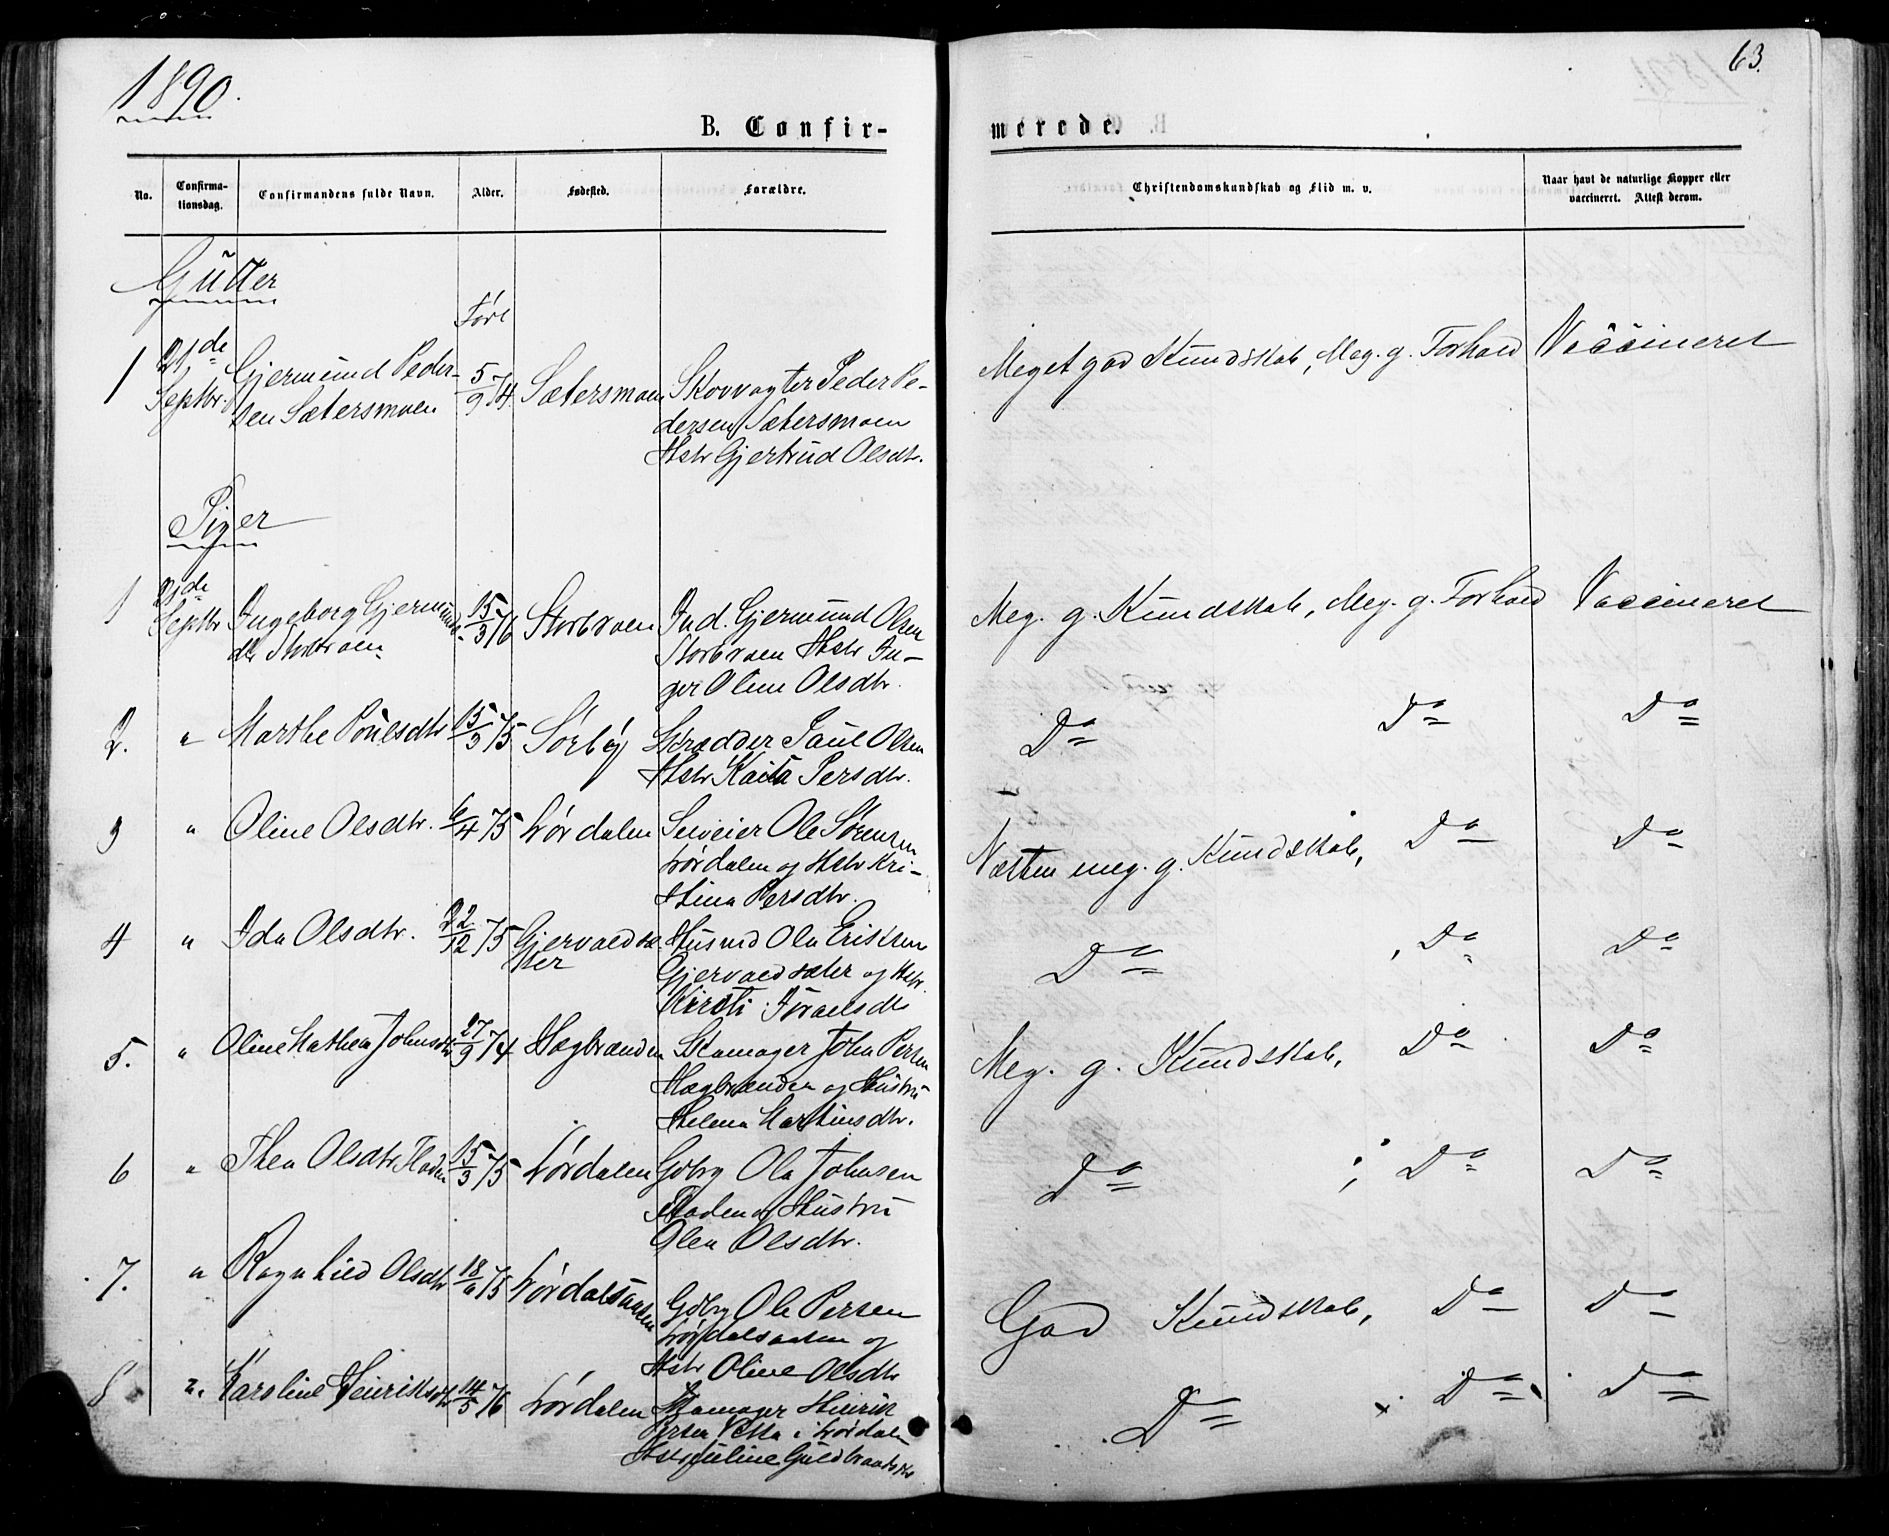 1890.
63.
B. Confir-
merede.
No.
Confirma-
tionsdag.
Confirmandens fulde Navn.
Alder.
Fødested.
Forældre.
Christendomskundskab og Flid m. v.
Naar havt de naturlige Kopper eller
vaccineret. Attest derom.
Gutter
Født
1 21de Septbr. Gjermund Peder-
sen Sætersmoen
5/9 74 Sætersmoen
Skovvogter Peder Pe-
dersen Sætersmoen
Hstr Gjertrud Olsdtr.
Meget god Kundskab, Meg. g. Forhold
Vaccineret
Piger
1 21de Septbr Ingeborg Gjermunds-
dtr Storbroen
15/3 76 Storbroen
Ind. Gjermund Olsen
Storbroen Hstr In-
ger Oline Olsdtr.
Meg. g. Kundskab, Meg. g. Forhold
Vaccineret
2. " Marthe Poulsdtr 15/3 75 Sørbøy
Skrædder Paul Olsen
Hstr Kaisa Persdtr.
Do Do Do
3 " Oline Olsdtr. 6/4 75 Lørdalen
Selveier Ole Sørensen
Lørdalen og Hstr Kri-
stina Persdtr.
Næsten meg. g. Kundskab, Do Do
4 " Ida Olsdtr. 22/12 75 Gjervoldsæ-
ter
Husmd Ola Eriksen
Gjervoldsæter og Hstr.
Kirsti Israelsdtr
Do , Do Do
5. " Oline Mathea Johnsdtr 27/9 74 Hagbrænden
Skomager John Persen
Hagbrænden og Hustru
Helena Martinsdtr.
Meg. g. Kundskab, Do Do
6 " Thea Olsdtr Floden 15/3 75 Lørdalen
Gdbrg Ola Johnsen
Floden og Hustru
Olea Olsdtr.
Do ; Do Do
7. " Ragnhild Olsdtr 18/6 75 Lørdalsaasen
Gdbrg Ole Persen
Lørdalsaasen og
Hstr Oline Olsdtr
God Kundskab, Do Do
8 ". Karoline Henriksdtr 14/5 76 Lørdalen
Skomager Henrik
Persen i Lørdalen
Hstr Juline Guldbrandsdtr
Do Do Do